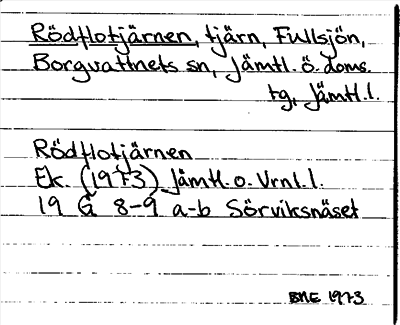 Rödflotjärnen, tjärn, Fullsjön,
Borgvattnets sn, Jämtl. ö. doms.
tg, Jämtl. l.
Rödflotjärnen
Ek. (1973) Jämtl. o. Vrnl. l.
19 G 8-9 a-b Sörviksnäset
BME 1973